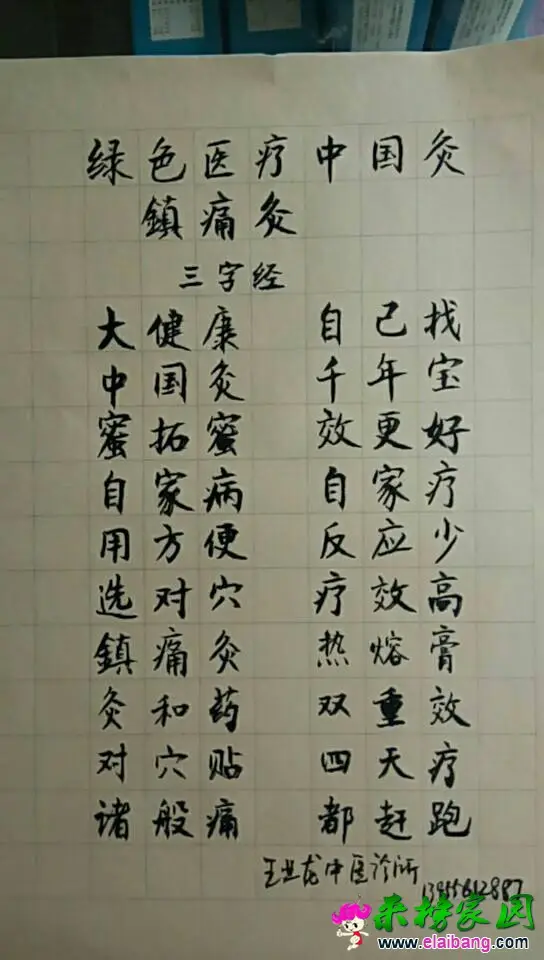 绿色医疗中国灸
鎮痛灸
三字经
大健康 自己找
中国灸 千年宝
蜜拓蜜 效更好
自家病 自家疗
用方便 反应少
选对穴 疗效高
鎮痛灸 热熔膏
灸和药 双重效
对穴贴 四天疗
诸般痛 都赶跑
王世龙中医诊所
来榜家园
www.elaibang.com